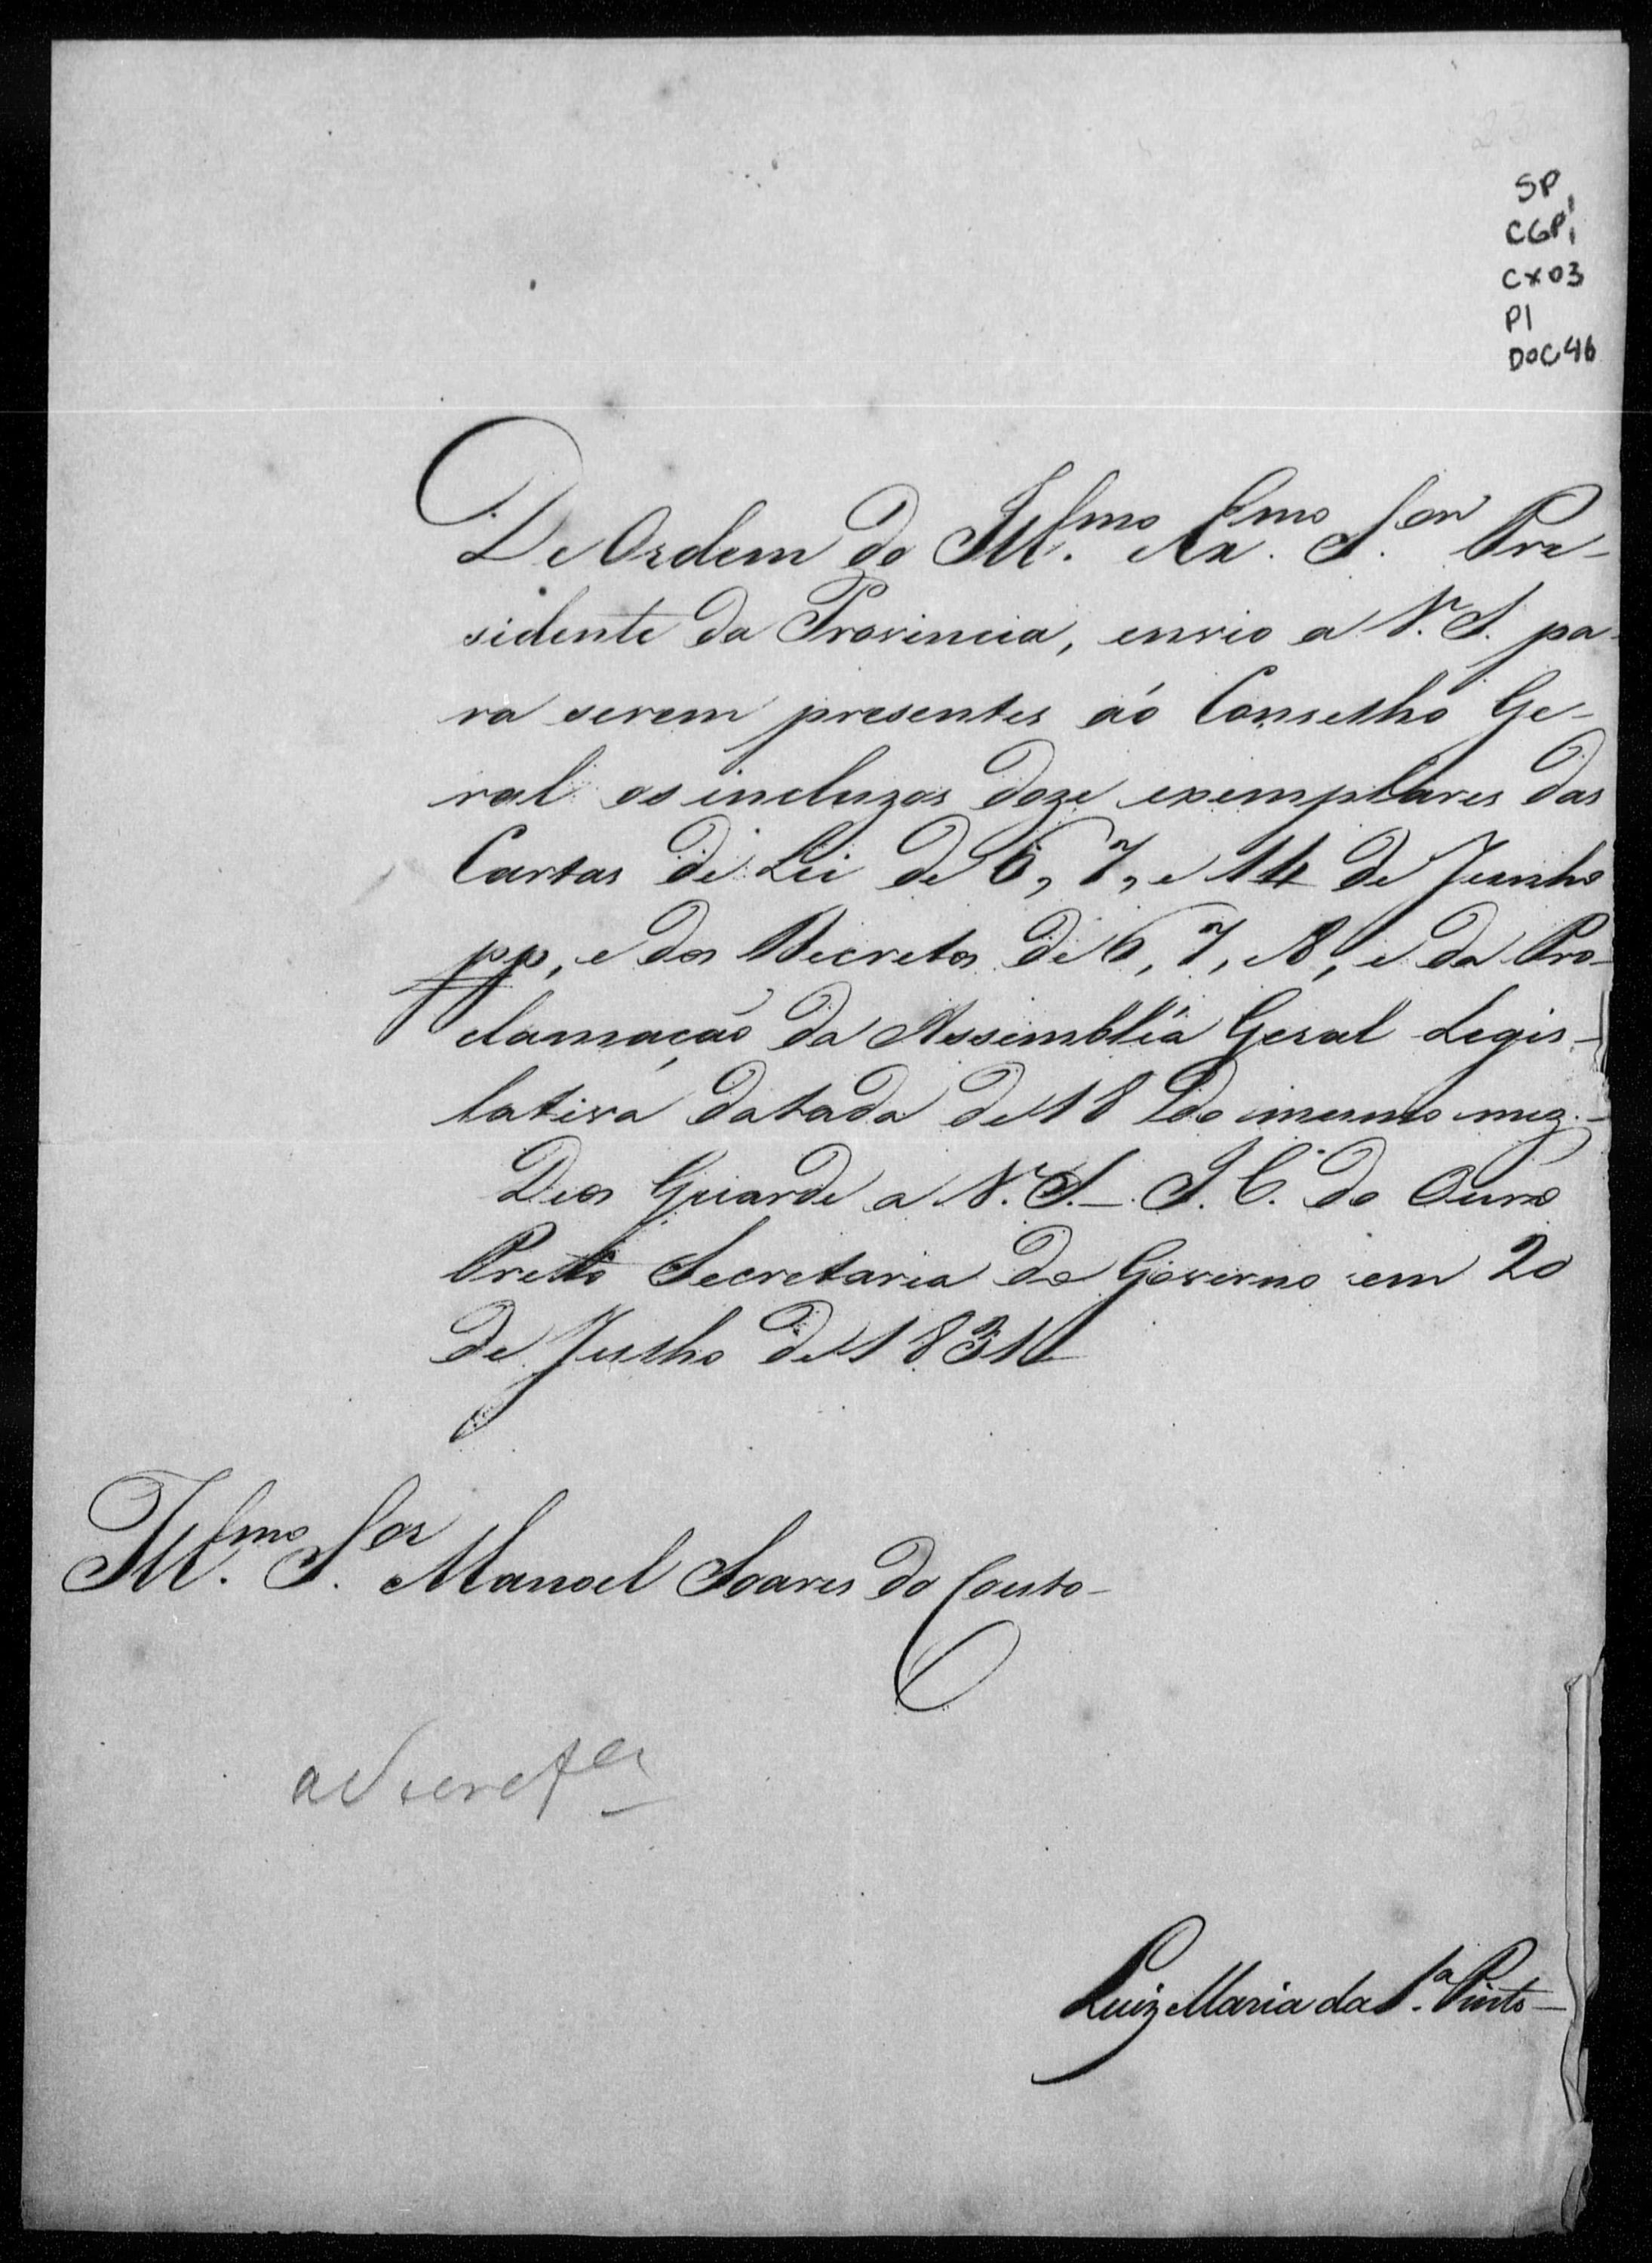 SP
CGP1
CX03
P1
DOC46
De Ordem do Ill.mo Ex.mo S.or Pre-
sidente da Provincia, envio a V. S. pa-
ra serem presentes aó Conselho Ge-
ral os incluzos doze exemplares das
Cartas de Lei de 6, 7, e 14 de Junho
pp, e dos Decretos de 6, 7, e 8, e da Pro-
clamação da Assembléa Geral Legis-
lativa datada de 18 do mesmo mez.-
Deos Guarde a V. S. - I. C. do Ouro
Preto Secretaria do Governo em 20
de Julho de 1831
Ill.mo S.or Manoel Soares do Couto-
a Secret.a
Luiz Maria da S.a Pinto-